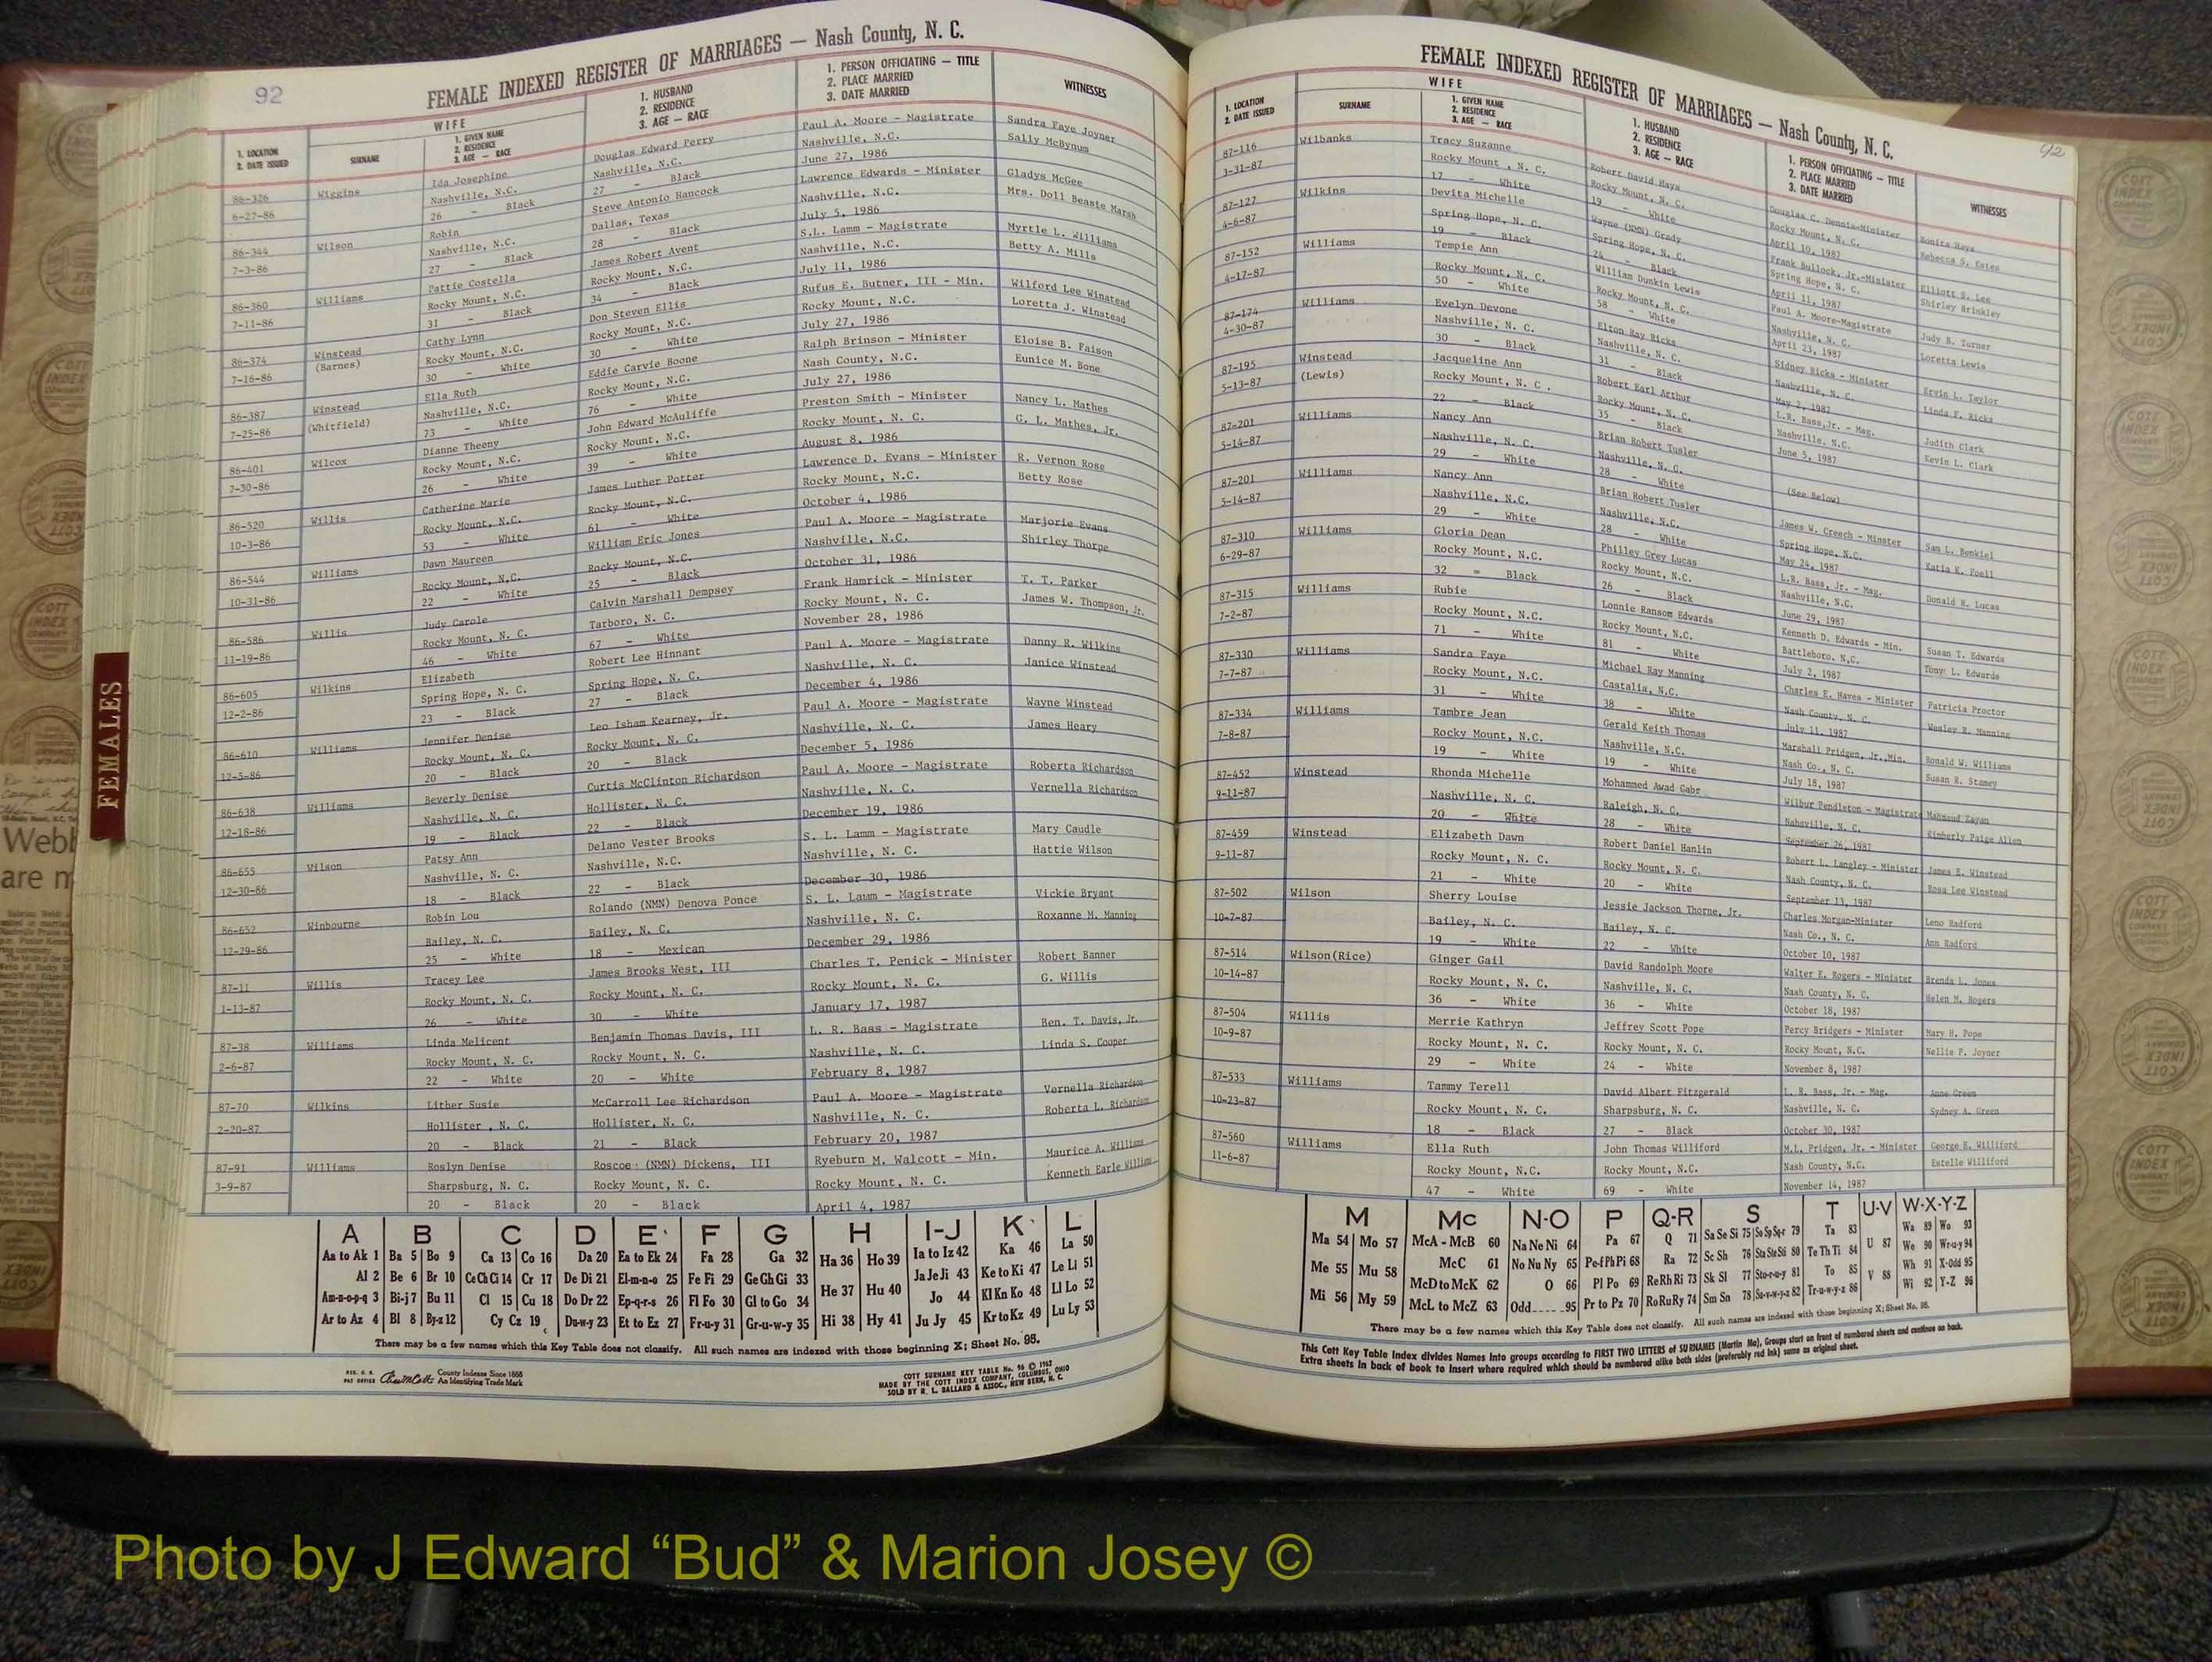 92
FEMALE INDEXED REGISTER OF MARRIAGES — Nash County, N. C.
1. LOCATION
2. DATE ISSUED
WIFE
SURNAME
1. GIVEN NAME
2. RESIDENCE
3. AGE — RACE
1. HUSBAND
2. RESIDENCE
3. AGE — RACE
1. PERSON OFFICIATING — TITLE
2. PLACE MARRIED
3. DATE MARRIED
WITNESSES
86-326 Wiggins Ida Josephine Douglas Edward Perry Paul A. Moore - Magistrate Sandra Faye Joyner
6-27-86 Nashville, N.C. Nashville, N.C. Nashville, N.C. Sally McBynum
26 - Black 27 - Black June 27, 1986
86-344 Wilson Robin Steve Antonio Hancock Lawrence Edwards - Minister Gladys McGee
7-3-86 Nashville, N.C. Dallas, Texas Nashville, N.C. Mrs. Doll Beasie Marsh
27 - Black 28 - Black July 5, 1986
86-360 Williams Pattie Costella James Robert Avent S.L. Lamm - Magistrate Myrtle L. Williams
7-11-86 Rocky Mount, N.C. Rocky Mount, N.C. Nashville, N.C. Betty A. Mills
31 - Black 34 - Black July 11, 1986
86-374 Winstead Cathy Lynn Don Steven Ellis Rufus E. Butner, III - Min. Wilford Lee Winstead
7-16-86 (Barnes) Rocky Mount, N.C. Rocky Mount, N.C. Rocky Mount, N.C. Loretta J. Winstead
30 - White 30 - White July 27, 1986
86-387 Winstead Ella Ruth Eddie Carvie Boone Ralph Brinson - Minister Eloise B. Faison
7-25-86 (Whitfield) Nashville, N.C. Rocky Mount, N.C. Nash County, N.C. Eunice M. Bone
73 - White 76 - White July 27, 1986
86-401 Wilcox Dianne Theeny John Edward McAuliffe Preston Smith - Minister Nancy L. Mathes
7-30-86 Rocky Mount, N.C. Rocky Mount, N.C. Rocky Mount, N. C. G. L. Mathes, Jr.
26 - White 39 - White August 8, 1986
86-520 Willis Catherine Marie James Luther Potter Lawrence D. Evans - Minister R. Vernon Rose
10-3-86 Rocky Mount, N.C. Rocky Mount, N.C. Rocky Mount, N.C. Betty Rose
53 - White 61 - White October 4, 1986
86-544 Williams Dawn Maureen William Eric Jones Paul A. Moore - Magistrate Marjorie Evans
10-31-86 Rocky Mount, N.C. Rocky Mount, N.C. Nashville, N.C. Shirley Thorpe
22 - White 25 - Black October 31, 1986
86-586 Willis Judy Carole Calvin Marshall Dempsey Frank Hamrick - Minister T. T. Parker
11-19-86 Rocky Mount, N. C. Tarboro, N. C. Rocky Mount, N. C. James W. Thompson, Jr.
46 - White 67 - White November 28, 1986
86-605 Wilkins Elizabeth Robert Lee Hinnant Paul A. Moore - Magistrate Danny R. Wilkins
12-2-86 Spring Hope, N. C. Spring Hope, N. C. Nashville, N. C. Janice Winstead
23 - Black 27 - Black December 4, 1986
86-610 Williams Jennifer Denise Leo Isham Kearney, Jr. Paul A. Moore - Magistrate Wayne Winstead
12-5-86 Rocky Mount, N. C. Rocky Mount, N. C. Nashville, N. C. James Heary
20 - Black 20 - Black December 5, 1986
86-638 Williams Beverly Denise Curtis McClinton Richardson Paul A. Moore - Magistrate Roberta Richardson
12-18-86 Nashville, N. C. Hollister, N. C. Nashville, N. C. Vernella Richardson
19 - Black 22 - Black December 19, 1986
86-655 Wilson Patsy Ann Delano Vester Brooks S. L. Lamm - Magistrate Mary Caudle
12-30-86 Nashville, N. C. Nashville, N.C. Nashville, N. C. Hattie Wilson
18 - Black 22 - Black December 30, 1986
86-652 Winbourne Robin Lou Rolando (NMN) Denova Ponce S. L. Lamm - Magistrate Vickie Bryant
12-29-86 Bailey, N. C. Bailey, N. C. Nashville, N. C. Roxanne M. Manning
25 - White 18 - Mexican December 29, 1986
87-11 Willis Tracey Lee James Brooks West, III Charles T. Penick - Minister Robert Banner
1-13-87 Rocky Mount, N. C. Rocky Mount, N. C. Rocky Mount, N. C. G. Willis
26 - White 30 - White January 17, 1987
87-38 Williams Linda Melicent Benjamin Thomas Davis, III L. R. Bass - Magistrate Ben. T. Davis, Jr.
2-6-87 Rocky Mount, N. C. Rocky Mount, N. C. Nashville, N. C. Linda S. Cooper
22 - White 20 - White February 8, 1987
87-70 Wilkins Lither Susie McCarroll Lee Richardson Paul A. Moore - Magistrate Vernella Richardson
2-20-87 Hollister , N. C. Hollister, N. C. Nashville, N. C. Roberta L. Richardson
20 - Black 21 - Black February 20, 1987
87-91 Williams Roslyn Denise Roscoe (NMN) Dickens, III Ryeburn M. Walcott - Min. Maurice A. Williams
3-9-87 Sharpsburg, N. C. Rocky Mount, N. C. Rocky Mount, N. C. Kenneth Earle Williams
20 - Black 20 - Black April 4, 1987
A B C D E F G H I-J K L
Aa to Ak 1 Ba 5 Bo 9 Ca 13 Co 16 Da 20 Ea to Ek 24 Fa 28 Ga 32 Ha 36 Ho 39 Ia to Iz 42 Ka 46 La 50
Al 2 Be 6 Br 10 Ce Ch Ci 14 Cr 17 De Di 21 El-m-n-o 25 Fe Fi 29 Ge Gh Gi 33 He 37 Hu 40 Ja Je Ji 43 Ke to Ki 47 Le Li 51
Am-n-o-p-q 3 Bi-j 7 Bu 11 Cl 15 Cu 18 Do Dr 22 Ep-q-r-s 26 Fl Fo 30 Gl to Go 34 Jo 44 Kl Kn Ko 48 Ll Lo 52
Ar to Az 4 Bl 8 By-z 12 Cy Cz 19 Du-w-y 23 Et to Ez 27 Fr-u-y 31 Gr-u-w-y 35 Hi 38 Hy 41 Ju Jy 45 Kr to Kz 49 Lu Ly 53
There may be a few names which this Key Table does not classify. All such names are indexed with those beginning X; Sheet No. 95.
REG. U. S.
PAT OFFICE
County Indexes Since 1888
An Identifying Trade Mark
COTT SURNAME KEY TABLE No. 96 © 1962
MADE BY THE COTT INDEX COMPANY, COLUMBUS, OHIO
SOLD BY R. L. BALLARD & ASSOC., NEW BERN, N. C.
FEMALES
Webb
are m
FEMALE INDEXED REGISTER OF MARRIAGES — Nash County, N. C.
92
1. LOCATION
2. DATE ISSUED
WIFE
SURNAME
1. GIVEN NAME
2. RESIDENCE
3. AGE — RACE
1. HUSBAND
2. RESIDENCE
3. AGE — RACE
1. PERSON OFFICIATING — TITLE
2. PLACE MARRIED
3. DATE MARRIED
WITNESSES
87-116 Wilbanks Tracy Suzanne Robert David Hays Douglas C. Dennis-Minister Bonita Hays
3-31-87 Rocky Mount , N. C. Rocky Mount, N. C. Rocky Mount, N. C. Rebecca S. Estes
17 - White 19 - White April 10, 1987
87-127 Wilkins Devita Michelle Wayne (NMN) Grady Frank Bullock, Jr.-Minister Elliott S. Lee
4-6-87 Spring Hope, N. C. Spring Hope, N. C. Spring Hope, N. C. Shirley Brinkley
19 - Black 24 - Black April 11, 1987
87-152 Williams Tempie Ann William Dunkin Lewis Paul A. Moore-Magistrate Judy B. Turner
4-17-87 Rocky Mount, N. C. Rocky Mount, N. C. Nashville, N. C. Loretta Lewis
50 - White 58 - White April 23, 1987
87-174 Williams Evelyn Devone Elton Ray Ricks Sidney Ricks - Minister Ervin L. Taylor
4-30-87 Nashville, N. C. Nashville, N. C. Nashville, N. C. Linda F. Ricks
30 - Black 31 - Black May 2, 1987
87-195 Winstead Jacqueline Ann Robert Earl Arthur L.R. Bass,Jr. - Mag. Judith Clark
5-13-87 (Lewis) Rocky Mount, N. C . Rocky Mount, N. C. Nashville, N.C. Kevin L. Clark
22 - Black 35 - Black June 5, 1987
87-201 Williams Nancy Ann Brian Robert Tusler
5-14-87 Nashville, N. C. Nashville, N. C. (See Below)
29 - White 28 - White
87-201 Williams Nancy Ann Brian Robert Tusler James W. Creech - Minster Sam L. Benkiel
5-14-87 Nashville, N.C. Nashville, N.C. Spring Hope, N.C. Katia K. Foell
29 - White 28 - White May 24, 1987
87-310 Williams Gloria Dean Philley Grey Lucas L.R. Bass, Jr. - Mag. Donald R. Lucas
6-29-87 Rocky Mount, N.C. Rocky Mount, N.C. Nashville, N.C.
32 = Black 26 - Black June 29, 1987
87-315 Williams Rubie Lonnie Ransom Edwards Kenneth D. Edwards - Min. Susan T. Edwards
7-2-87 Rocky Mount, N.C. Rocky Mount, N.C. Battleboro, N.C. Tony L. Edwards
71 - White 81 - White July 2, 1987
87-330 Williams Sandra Faye Michael Ray Manning Charles E. Haves - Minister Patricia Proctor
7-7-87 Rocky Mount, N.C. Castalia, N.C. Nash County, N. C. Wesley R. Manning
31 - White 38 - White July 11, 1987
87-334 Williams Tambre Jean Gerald Keith Thomas Marshall Pridgen, Jr.,Min. Ronald W. Williams
7-8-87 Rocky Mount, N.C. Nashville, N.C. Nash Co., N. C. Susan R. Stamey
19 - White 19 - White July 18, 1987
87-452 Winstead Rhonda Michelle Mohammed Awad Gabr Wilbur Pendleton - Magistrate Mahmaud Zayan
9-11-87 Nashville, N. C. Raleigh, N. C. Nahsville, N. C. Kimberly Paige Allen
20 - White 28 - White September 26, 1987
87-459 Winstead Elizabeth Dawn Robert Daniel Hanlin Robert L. Langley - Minister James E. Winstead
9-11-87 Rocky Mount, N. C. Rocky Mount, N. C. Nash County, N. C. Rosa Lee Winstead
21 - White 20 - White September 13, 1987
87-502 Wilson Sherry Louise Jessie Jackson Thorne, Jr. Charles Morgan-Minister Leno Radford
10-7-87 Bailey, N. C. Bailey, N. C. Nash Co., N. C. Ann Radford
19 - White 22 - White October 10, 1987
87-514 Wilson(Rice) Ginger Gail David Randolph Moore Walter E. Rogers - Minister Brenda L. Jones
10-14-87 Rocky Mount, N. C. Nashville, N. C. Nash County, N. C. Helen M. Rogers
36 - White 36 - White October 18, 1987
87-504 Willis Merrie Kathryn Jeffrey Scott Pope Percy Bridgers - Minister Mary H. Pope
10-9-87 Rocky Mount, N. C. Rocky Mount, N. C. Rocky Mount, N.C. Nellie P. Joyner
29 - White 24 - White November 8, 1987
87-533 Williams Tammy Terell David Albert Fitzgerald L. R. Bass, Jr. - Mag. Anne Green
10-23-87 Rocky Mount, N. C. Sharpsburg, N. C. Nashville, N. C. Sydney A. Green
18 - Black 27 - Black October 30, 1987
87-560 Williams Ella Ruth John Thomas Williford M.L. Pridgen, Jr. - Minister George E. Williford
11-6-87 Rocky Mount, N.C. Rocky Mount, N.C. Nash County, N.C. Estelle Williford
47 - White 69 - White November 14, 1987
M Mc N-O P Q-R S T U-V W-X-Y-Z
Ma 54 Mo 57 McA - McB 60 Na Ne Ni 64 Pa 67 Q 71 Sa Se Si 75 So Sp Sq-r 79 Ta 83 U 87 Wa 89 Wo 93
Me 55 Mu 58 McC 61 No Nu Ny 65 Pe-f Ph Pi 68 Ra 72 Sc Sh 76 Sta Ste Sti 80 Te Th Ti 84 We 90 Wr-u-y 94
McD to McK 62 O 66 Pl Po 69 Re Rh Ri 73 Sk Sl 77 Sto-r-u-y 81 To 85 V 88 Wh 91 X-Odd 95
Mi 56 My 59 McL to McZ 63 Odd 95 Pr to Pz 70 Ro Ru Ry 74 Sm Sn 78 Su-v-w-y-z 82 Tr-u-w-y-z 86 Wi 92 Y-Z 96
There may be a few names which this Key Table does not classify. All such names are indexed with those beginning X; Sheet No. 95.
This Cott Key Table Index divides Names into groups according to FIRST TWO LETTERS of SURNAMES (Martin Ma), Groups start on front of numbered sheets and continue on back.
Extra sheets in back of book to insert where required which should be numbered alike both sides (preferably red ink) same as original sheet.
Photo by J Edward “Bud” & Marion Josey ©